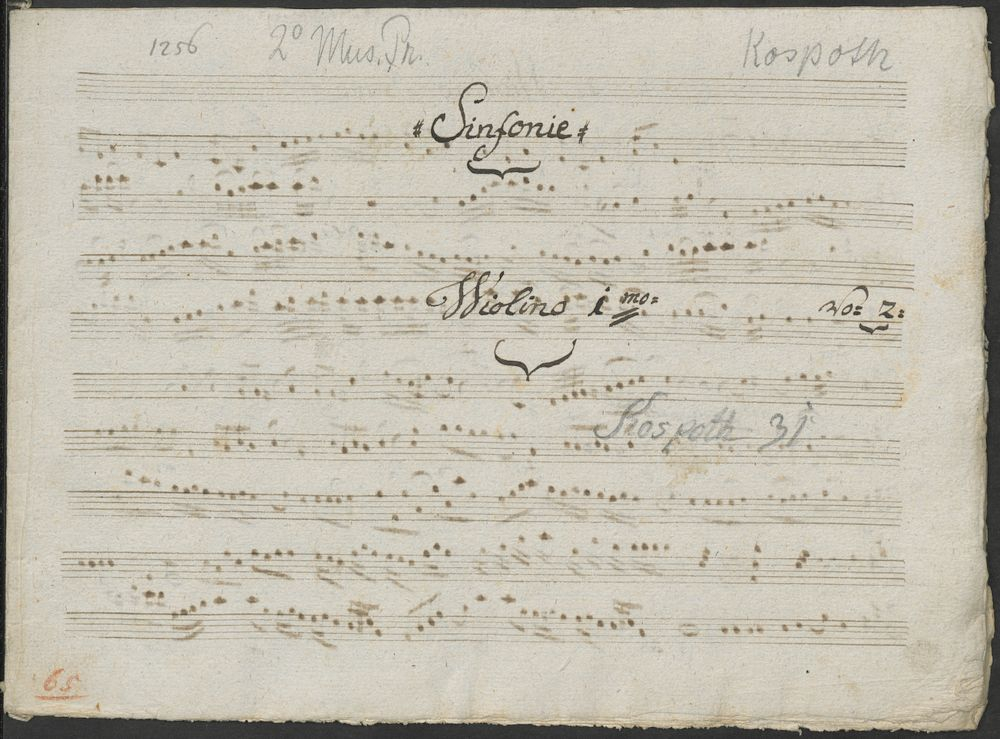 1256 2º Mus. Pr. Kospoth
Sinfonie
Wiolino i mo= No= 2=
Kospoth 31
65